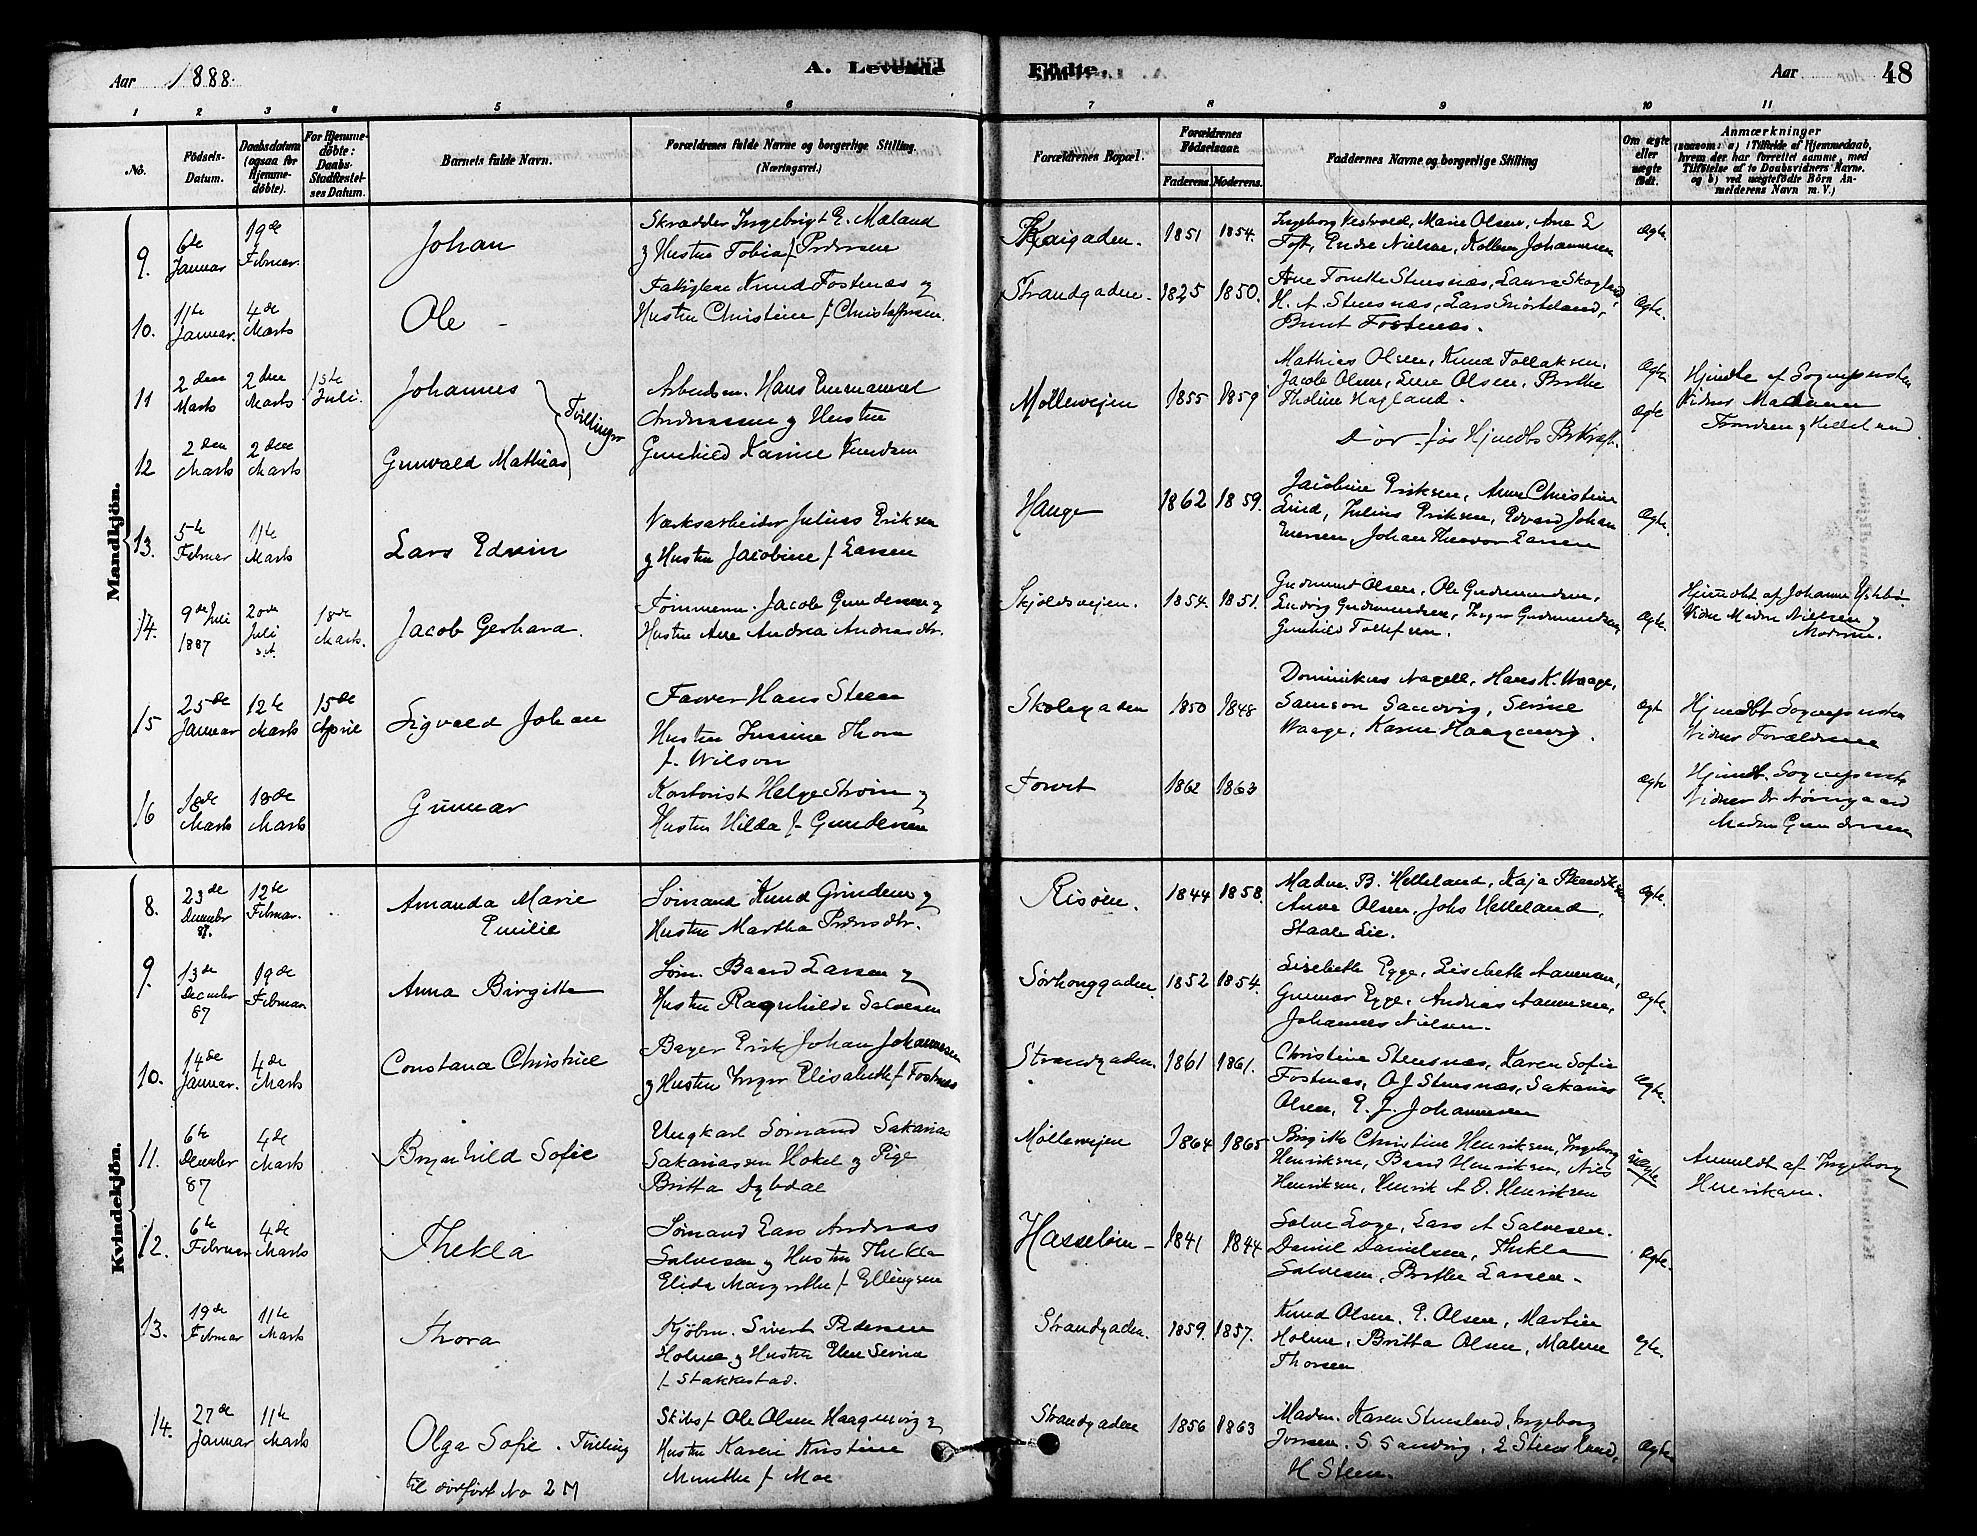 Aar 1888.
A. Levende
Födte.
Aar
48
1 2 3 4 5 6 7 8 9 10 11
No.
Födsels-Datum.
Daabsdatum (ogsaa for Hjemme-döbte).
For Hjemme-döbte: Daabs-Stadfæstel-ses Datum.
Barnets fulde Navn.
Forældrenes fulde Navne og borgerlige Stilling. (Næringsvei.)
Forældrenes Bopæl.
Forældrenes Födselsaar.
Faderens. Moderens.
Faddernes Navne og borgerlige Stilling
Om ægte eller uægte födt.
Anmærkninger
(saasom: a) i Tilfælde af Hjemmedaab, hvem der har forrettet samme, med Tilföielse af to Daabsvidners Navne. og b) ved uægtefödte Börn An-melderens Navn m. V.)
Mandkjön.
9. 6te Januar
19de Februar.
Johan
Skrædder Ingebrigt E. Mæland
Husten Tobia f. Pedersen
Kaigaden.
1851 1854.
Marie Olsen, Ane E
Endre Nielsen, Johannesen
Ægte
10. 11te Januar.
4de Marts
Ole
Knud Fostenæs og
Hustru Christine f. Christoffersen.
Strandgaden.
1825 1850.
Ane Steensnæs, Laura Skogland,
H. A. Steensnæs, Lars
Fostenæs.
Ægte.
11 2den Marts
2den Marts
1ste Juli.
Johannes
Tvillinger
Arbeidsm. Hans Emmanuel
Andreassen og Hustru
Mølleveien
1855 1859
Mathias Olsen, Knud Tollaksen,
Jacob Olsen, Olsen, Berthe
Tholine Hagland.
Ægte
Hjmdbt af Sognepresten
Vidner Madam
12 2den Marts
2den Marts
Gunvald Mathias
Gunhild Karine Knudsen
Ægte
13. 5te Februar
11te Marts
Lars Edvin
Værksarbeider Julius Eriksen
og Hustru Jacobine f. Larsen
Hauge
1862 1859.
Jacobine Eriksen, Anne Christine
Lind, Julius Eriksen, Edvard Johan
Iversen, Johan Larsen
Ægte.
14. 9de Juli 1887
20de Juli
18de Marts.
Jacob Gerhard.
Tømmerm. Jacob Gundersen og
Hustru Ane Andrea Andreasdtr.
Skjoldsveien.
1854. 1851.
Gudmund Olsen, Ole Gudmundsen,
Ludvig Gudmundsen, Inger Gudmundsen,
Gunhild Tollefsen.
Ægte.
Hjmdbt af Johanne
Nielsen og
Moderen.
15 25de Januar
12te Marts
15de April
Sigvald Johan
Farver Hans Steen
Hustru Thora
f. Wilson
Skolegaden
1850 1848
Dominikus Nagell, Hans K. Waage,
Samson Sandvig, Serine
Waage, Karen Haaganvig.
Ægte
Hjmdbt Sognepresten
Vidner Forældrene
16 18de Marts
18de Marts
Gunnar
Kontorist Helge Strøm og
Hustru Hilda f. Gundersen
Torvet
1862 1863
Ægte
Hjmdbt. Sognepresten
Vidner Dr Nørregaard
Madm Gundersen
Kvindekjön.
8. 23de December 87.
12te Februar.
Amanda Marie
Emilie
Sømand Knud Grindem og
Hustru Martha Pedersdtr.
Risøen.
1844 1858.
Madm. B. Helleland, Kaja
Anne Olsen, Johs Helleland,
Staale Lie.
Ægte.
9. 13de December 87
19de Februar.
Anna Birgitte
Søm. Baard Larsen og
Hustru Ragnhilde Salvesen
Sørhauggaden.
1852 1854.
Lisebethe Egge, Lisebethe
Gunnar Egge, Andreas
Johannes Nielsen.
Ægte.
10. 14de Januar.
4de Marts
Constana Christine
Bager Erik Johan Johannesen
og Hustru Inger Elisabeth f. Fostnæs
Strandgaden.
1861 1861.
Christine Steensnæs, Karen Sofie
Fostenæs, O J Steensnæs, Sakarias
Olsen, E. J. Johannesen
Ægte.
11. 6te December 87
4de Marts
Brynhild Sofie
Ungkarl Sømand Sakarias
Sakariassen Hokel og Pige
Britta Dybdal
Møllevejen
1864 1865
Birgitte Christine Henriksen, Ingeborg
Henriksen, Baard Henriksen, Nils
Henriksen, Henrik A. O. Henriksen
uægte
Anmeldt af Ingeborg
Henriksen.
12. 6te Februar
4de Marts
Thekla
Sømand Lars Andreas
Salvesen og Hustru Thekla
Elida Margrethe f. Ellingsen
Hasseløen
1841 1844
Salve Loge, Lars A Salvesen.
Daniel Danielsen, Thekla
Salvesen, Berthe Larsen.
Ægte.
13. 19de Februar
11te Marts
Thora
Kjøbm. Sivert Pedersen
Holme og Hustru Elen Serine
f. Stakkestad.
Strandgaden.
1859. 1857.
Knud Olsen, E. Olsen, Martin
Holme, Britta Olsen, Malene
Thorsen
Ægte.
14. 27de Januar
11te Marts
Olga Sofie. Tvilling
til dødfødt No 2 M
Skibsf. Ole Olsen Haagenvig og
Hustru Karen Kristine
Munthe f. Moe
Strandgaden
1856 1863
Madm. Karen Steensland, Ingeborg
Jonsen, S. Sandvig, E Steensland,
H Steen.
Ægte.